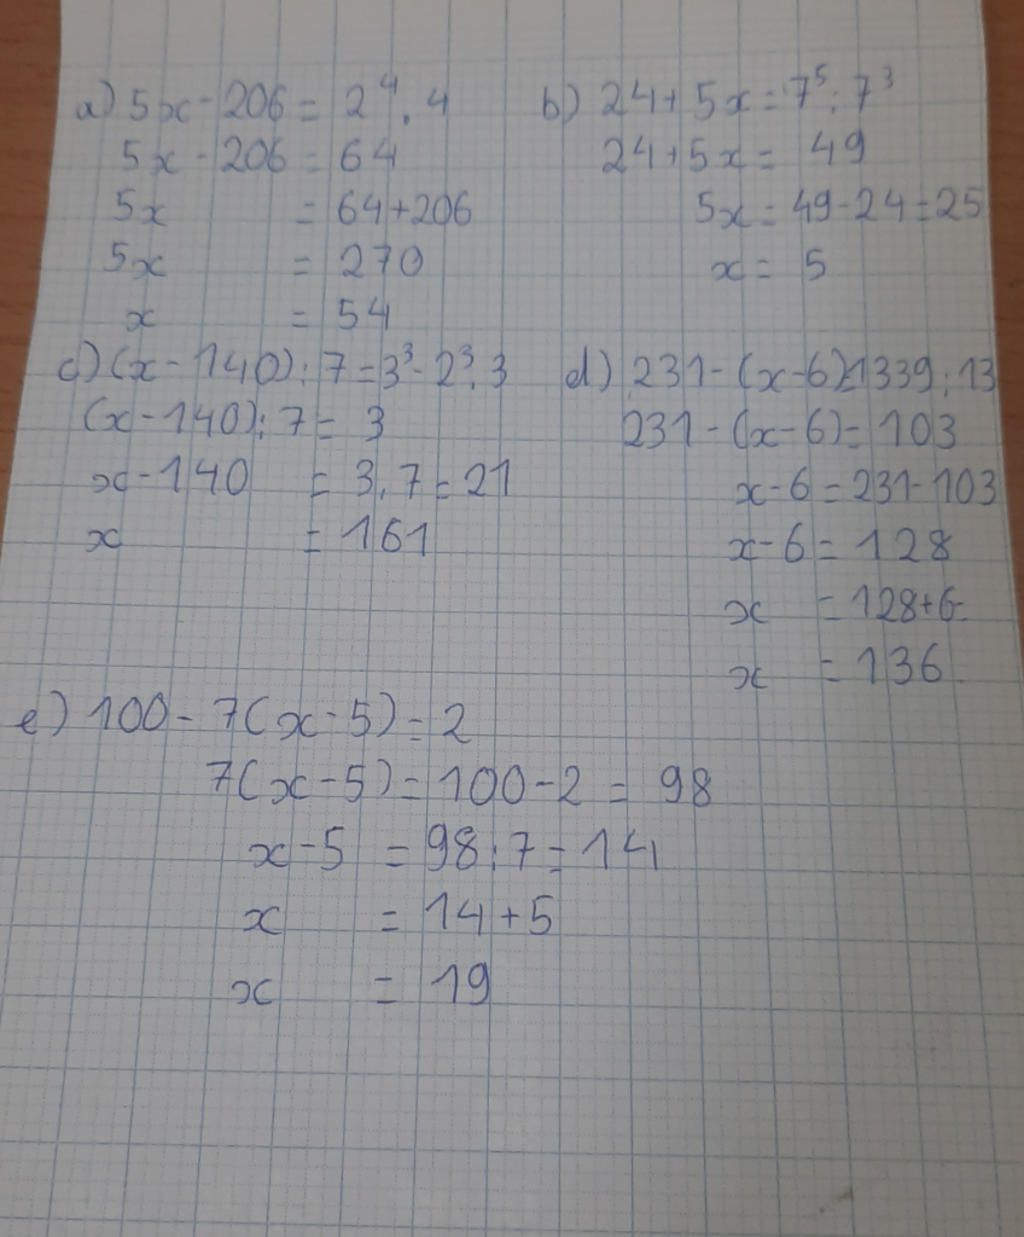 a) 5x - 206 = 2⁴ . 4
5x - 206 = 64
5x = 64 + 206
5x = 270
x = 54
b) 24 + 5x = 7⁵ : 7³
24 + 5x = 49
5x = 49 - 24 = 25
x = 5
c) (x - 140) : 7 = 3³ - 2³ . 3
(x - 140) : 7 = 3
x - 140 = 3 . 7 = 21
x = 161
d) 231 - (x - 6) = 1339 : 13
231 - (x - 6) = 103
x - 6 = 231 - 103
x - 6 = 128
x = 128 + 6
x = 136
e) 100 - 7(x - 5) = 2
7(x - 5) = 100 - 2 = 98
x - 5 = 98 : 7 = 14
x = 14 + 5
x = 19